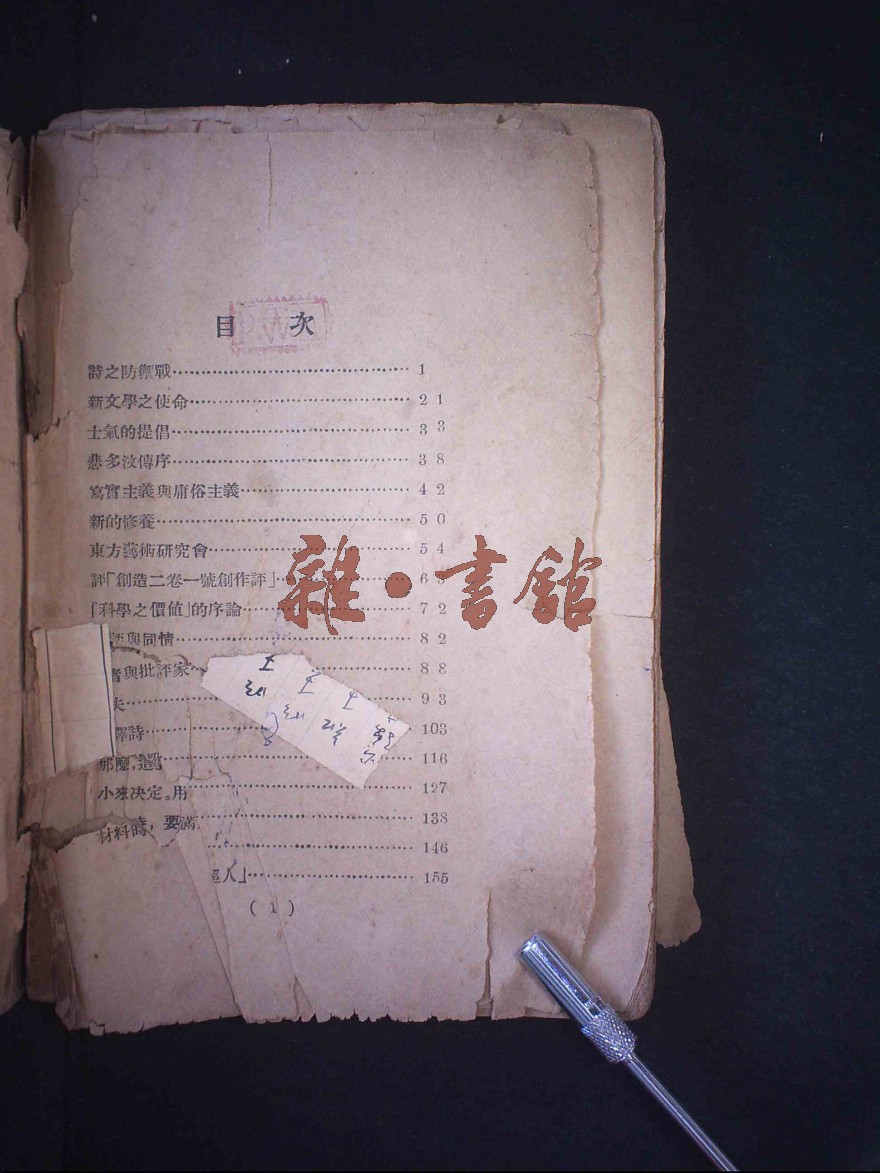 目 次
詩之防禦戰 1
新文學之使命 21
士氣的提倡 33
悲多汶傳序 38
寫實主義與庸俗主義 42
新的修養 50
東方藝術研究會 54
評「創造二卷一號創作評」 6
「科學之價値」的序論 72
與同情 82
者與批評家 88
夫 93
譯詩 103
那麼,造 116
小來决定。用 127
材料時,要滿 138
146
人」 155
( 1 )
雜·書館